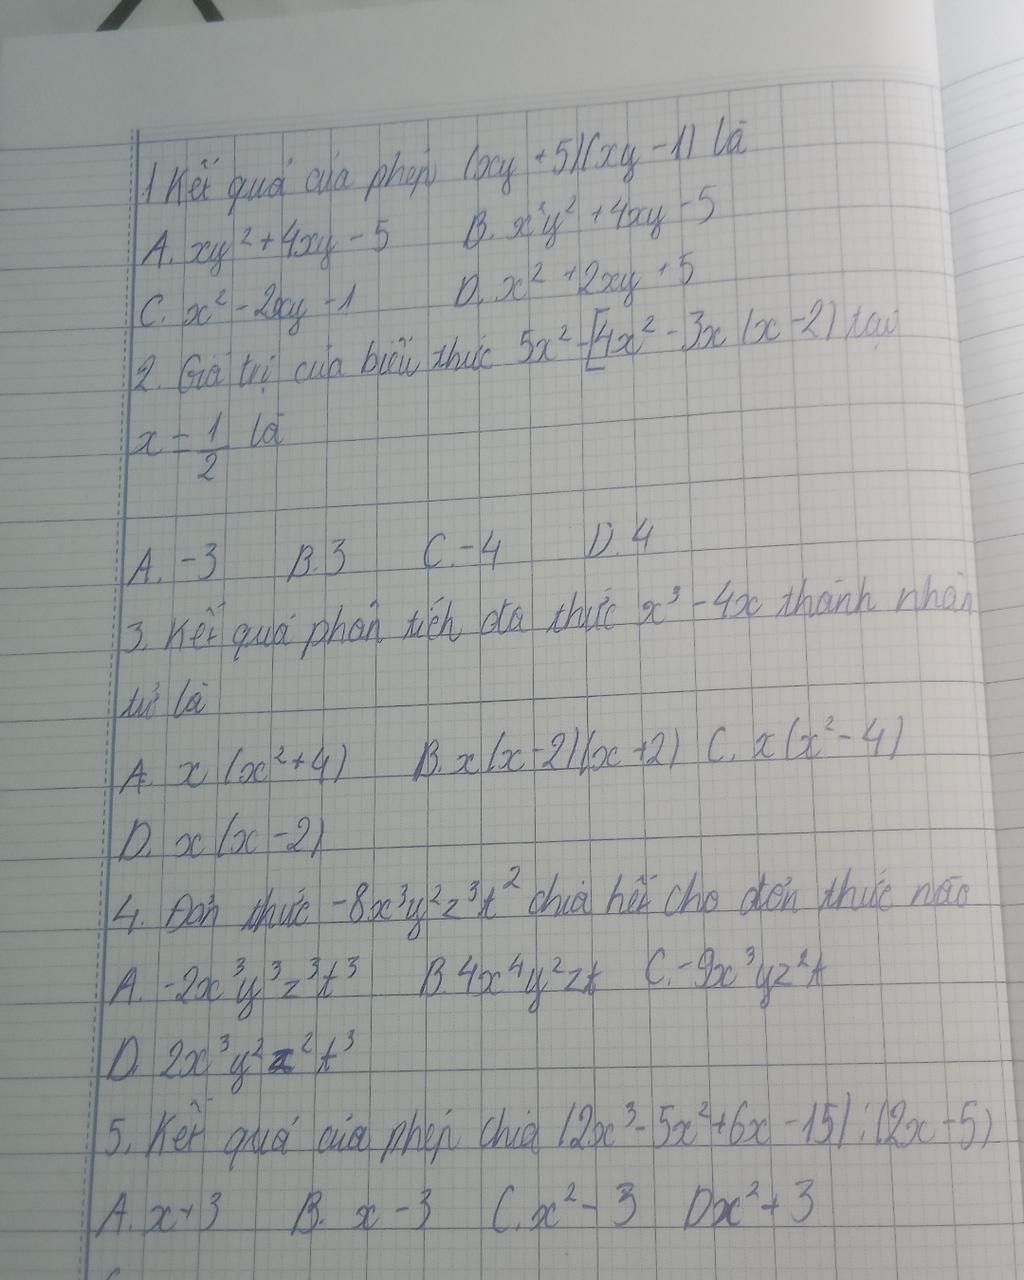 1 Kết quả của phép (xy + 5)(xy - 1) là
A. xy² + 4xy - 5 B. x²y² + 4xy - 5
C. x² - 2xy - 1 D. x² + 2xy + 5
2. Giá trị của biểu thức 5x² - [4x² - 3x (x - 2) tại
x = 1/2 là
A. -3 B. 3 C. -4 D. 4
3. Kết quả phân tích đa thức x³ - 4x thành nhân
tử là
A. x (x² + 4) B. x (x - 2)(x + 2) C. x (x² - 4)
D. x (x - 2)
4. Đơn thức -8x³y²z³t² chia hết cho đơn thức nào
A. -2x³y³z³t³ B. 4x⁴y²zt C. -9x³yz²t
D. 2x³y²z²t³
5. Kết quả của phép chia (2x³ - 5x² + 6x - 15) : (2x - 5)
A. x + 3 B. x - 3 C. x² - 3 D x² + 3